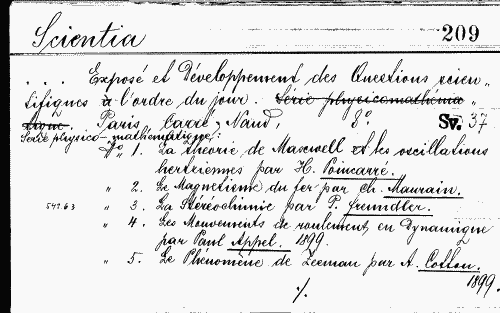 Scientia 209
. . . Exposé et Développement des Questions scien-
tifiques à l'ordre du jour. Série physicomathéma-
tique. Paris, Carré, Naud, 8°. Sv. 37
Série physico-mathématique:
N° 1. La théorie de Maxwell et les oscillations
hertziennes par H. Poincarré.
" 2. Le Magnetisme du fer par Ch. Maurain.
541.63 " 3. La Stéréochimie par P. Freundler.
" 4. Les Mouvements de roulement en Dynamique
par Paul Appel. 1899.
" 5. Le Phénomène de Zeeman par A. Cotton.
1899.
./.